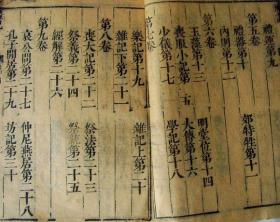 禮運第九
第五卷
禮器第十 郊特牲第十一
內則第十二
第六卷
玉藻第十三 明堂位第十四
喪服小記第十五 大傳第十六
少儀第十七 學記第十八
第七卷
樂記第十九 雜記上第二十
雜記下第二十一
第八卷
喪大記第二十二 祭法第二十三
祭義第二十四 祭統第二十五
經解第二十六
第九卷
哀公問第二十七 仲尼燕居第二十八
孔子閒居第二十九 坊記第三十